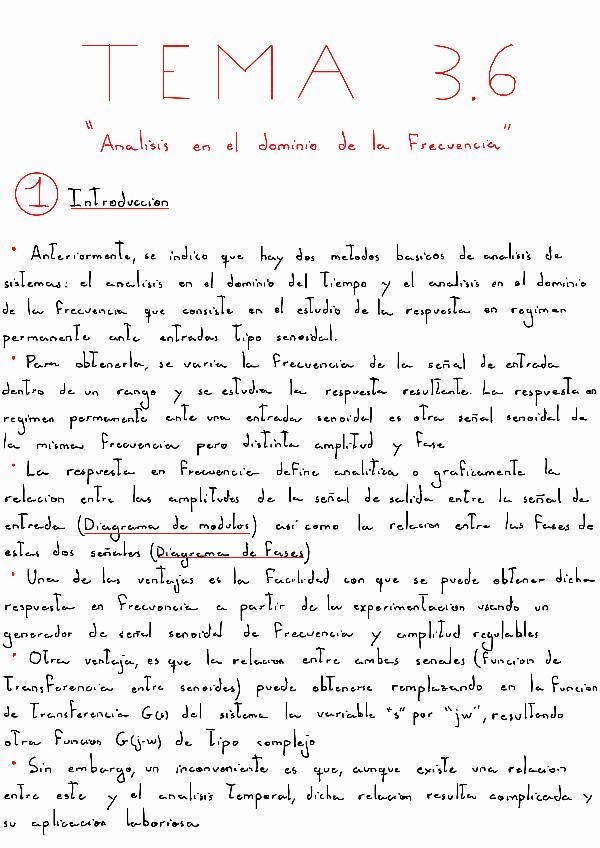 TEMA 3.6
"Analisis en el dominio de la Frecuencia"
1 Introduccion
• Anteriormente, se indico que hay dos metodos basicos de analisis de
sistemas: el analisis en el dominio del Tiempo y el analisis en el dominio
de la Frecuencia que consiste en el estudio de la respuesta en regimen
permanente ante entradas tipo senoidal.
• Para obtenerla, se varia la Frecuencia de la señal de entrada
dentro de un rango y se estudia la respuesta resultante. La respuesta en
regimen permanente ante una entrada senoidal es otra señal senoidal de
la misma Frecuencia pero distinta amplitud y fase
• La respuesta en Frecuencia define analitica o graficamente la
relacion entre las amplitudes de la señal de salida entre la señal de
entrada (Diagrama de modulos) así como la relacion entre las Fases de
estas dos señales (Diagrama de Fases)
• Una de las ventajas es la Facilidad con que se puede obtener dicha
respuesta en Frecuencia a partir de la experimentacion usando un
generador de señal senoidal de Frecuencia y amplitud regulables
• Otra ventaja, es que la relacion entre ambas senales (funcion de
Transferencia entre senoides) puede obtenerse remplazando en la funcion
de Transferencia G(s) del sistema la variable "s" por "jw", resultando
otra Funcion G(j·w) de Tipo complejo
• Sin embargo, un inconveniente es que, aunque existe una relacion
entre este y el analisis Temporal, dicha relacion resulta complicada y
su aplicacion laboriosa